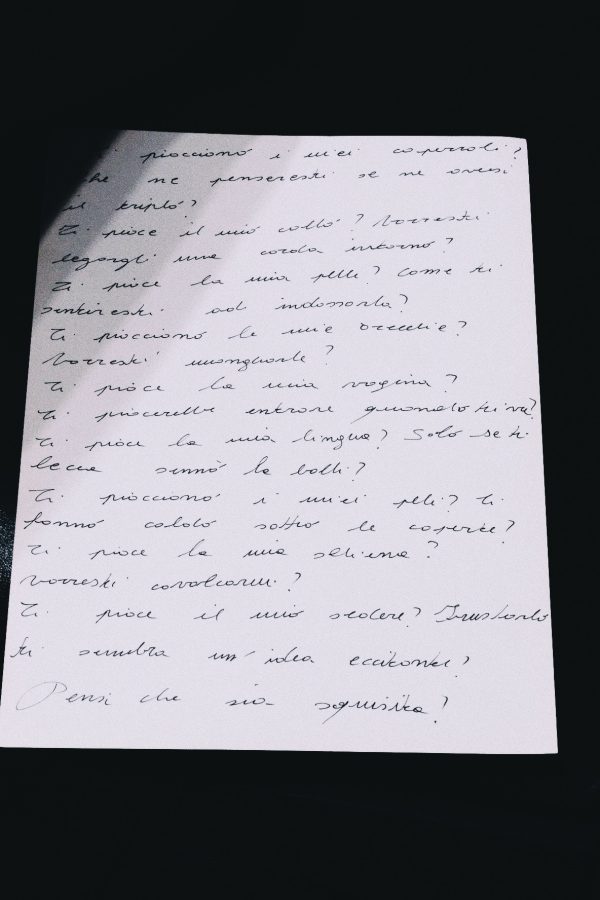 Ti piacciono i miei capezzoli?
che ne penseresti se ne avessi
il triplo?
Ti piace il mio collo? Vorresti
legargli una corda intorno?
Ti piace la mia pelle? Come ti
sentiresti ad indossarla?
Ti piacciono le mie orecchie?
Vorresti mangiarle?
Ti piace la mia vagina?
Ti piacerebbe entrare
Ti piace la mia lingua? Solo se ti
lecca sennò la balli?
Ti piacciono i miei peli? Ti
fanno caldo sotto le coperte?
Ti piace la mia schiena?
Vorresti cavalcarmi?
Ti piace il mio sedere? Frustarlo
ti sembra un'idea eccitante?
Pensi che sia squisita?